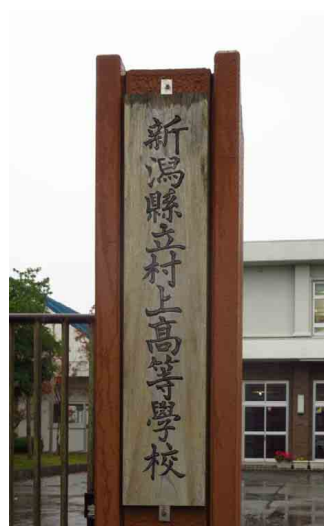 新潟縣立村上髙等學校